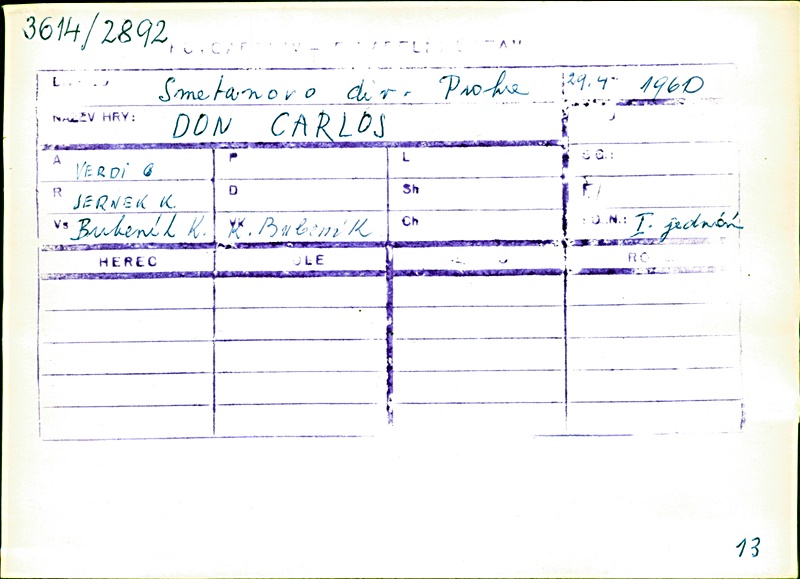 3614/2892
Smetanovo div. Praha 29.4 1960
NÁZEV HRY: DON CARLOS
A VERDI G P L
R JERNEK K. D Sh
Vs Bubeník K. VK K. Bubeník Ch I. jednání
HEREC
13